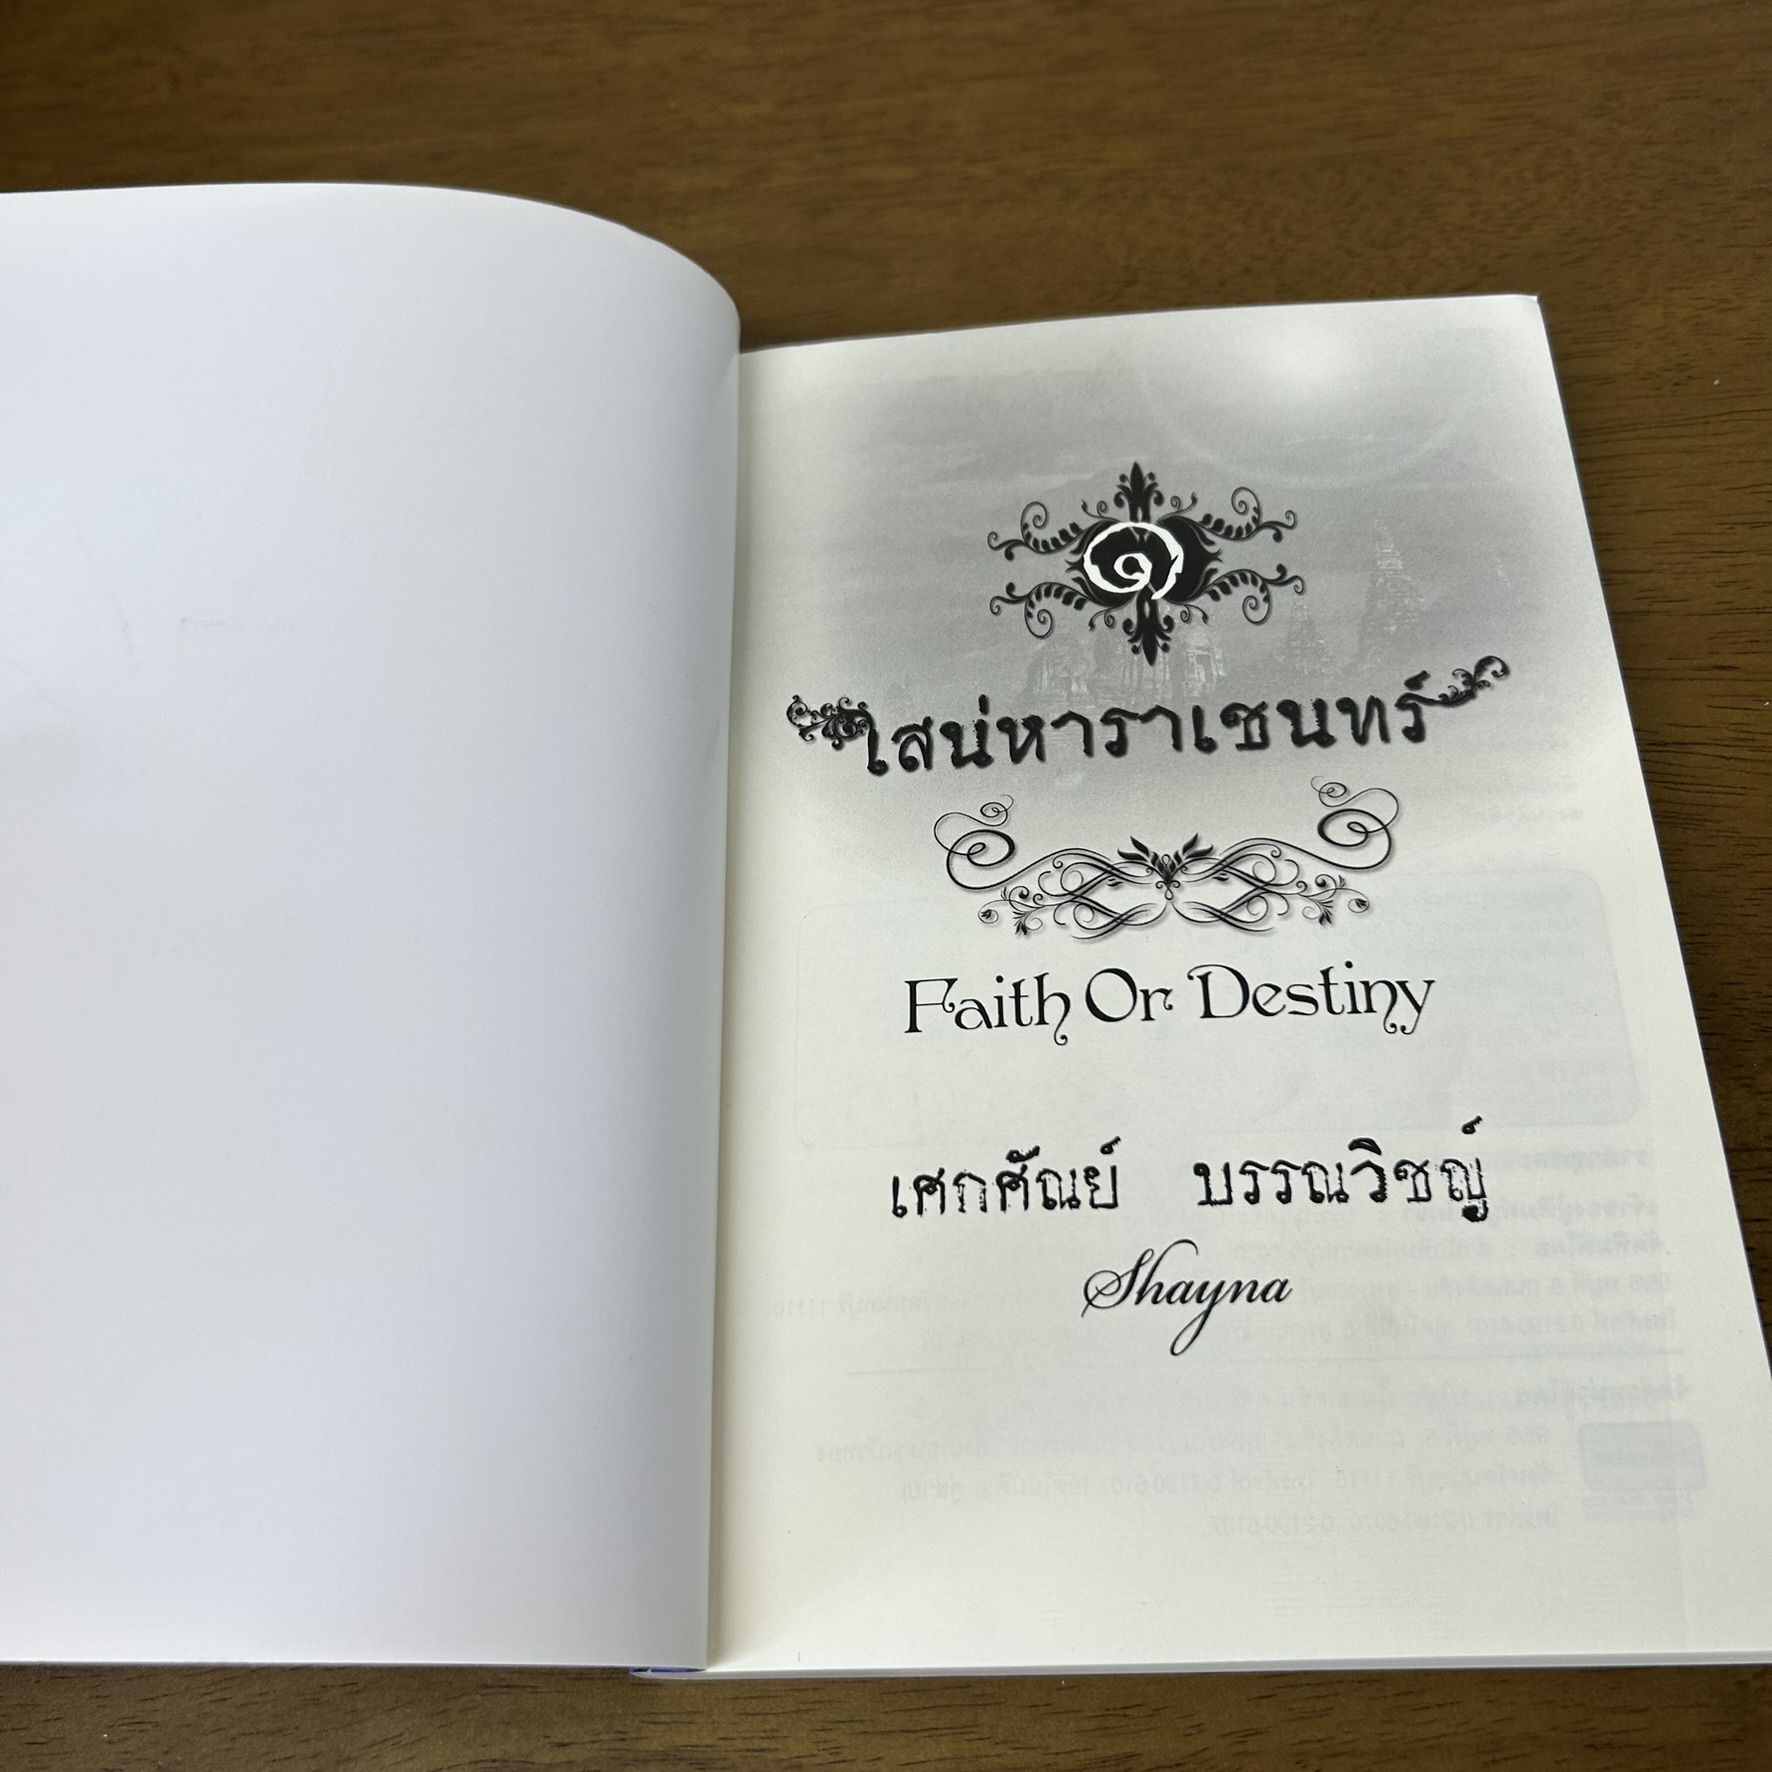 ๑
เสน่หาราเชนทร์
Faith Or Destiny
เศกศัณย์ บรรณวิชญ์
Shayna